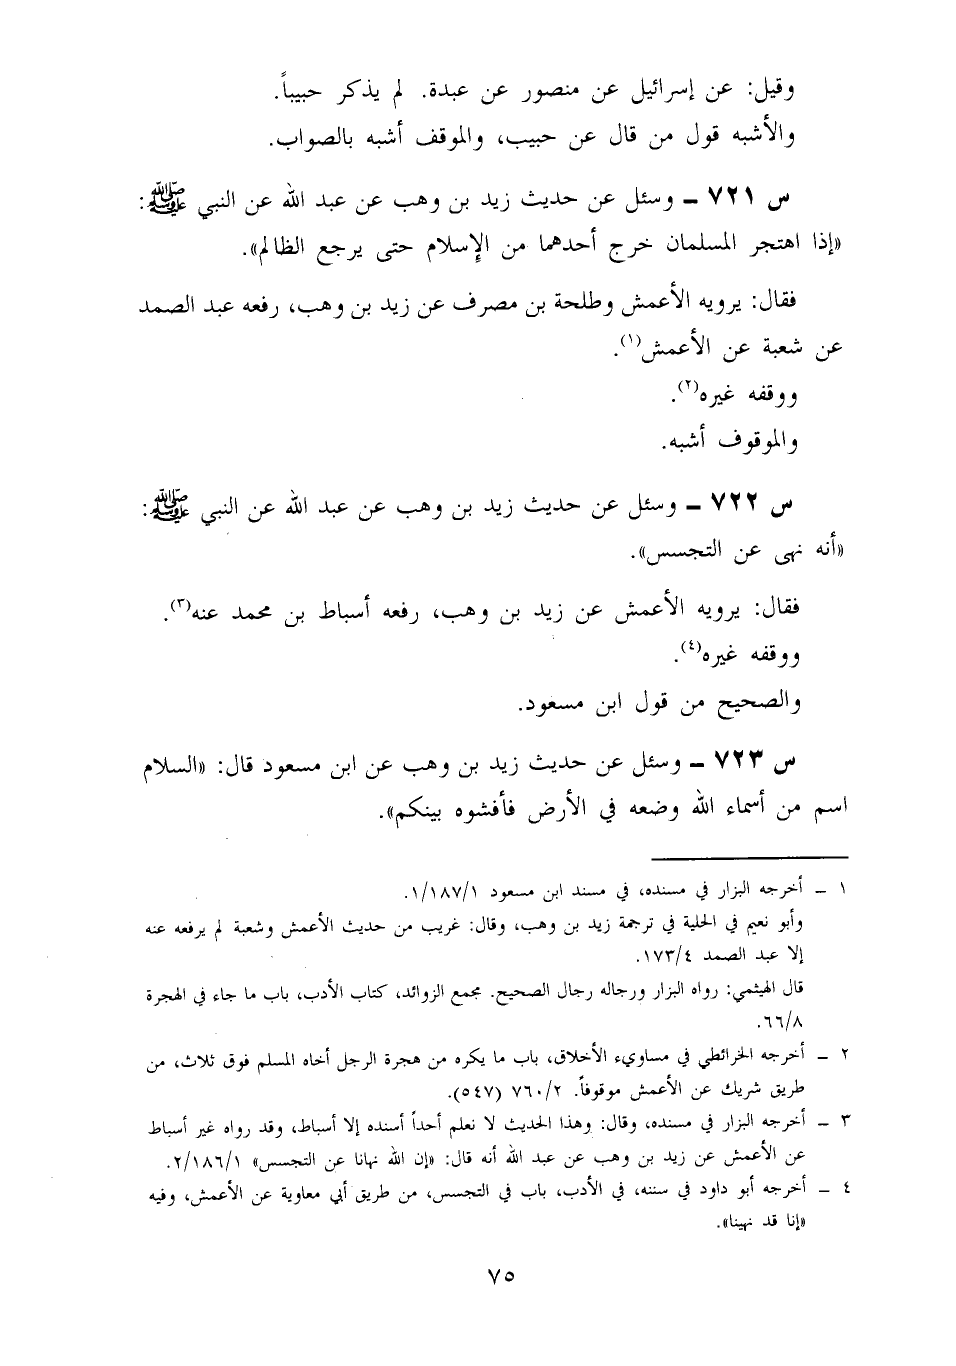 وقيل: عن إسرائيل عن منصور عن عبدة. لم يذكر حبيباً.
والأشبه قول من قال عن حبيب، والموقف أشبه بالصواب.
س ٧٢١ ـ وسئل عن حديث زيد بن وهب عن عبد الله عن النبي ﷺ:
«إذا اهتجر المسلمان خرج أحدهما من الإسلام حتى يرجع الظالم».
فقال: يرويه الأعمش وطلحة بن مصرف عن زيد بن وهب، رفعه عبد الصمد
عن شعبة عن الأعمش(١).
ووقفه غيره(٢).
والموقوف أشبه.
س ٧٢٢ ـ وسئل عن حديث زيد بن وهب عن عبد الله عن النبي ﷺ:
«أنه نهى عن التجسس».
فقال: يرويه الأعمش عن زيد بن وهب، رفعه أسباط بن محمد عنه(٣).
ووقفه غيره(٤).
والصحيح من قول ابن مسعود.
س ٧٢٣ ـ وسئل عن حديث زيد بن وهب عن ابن مسعود قال: «السلام
اسم من أسماء الله وضعه في الأرض فأفشوه بينكم».
١ ـ أخرجه البزار في مسنده، في مسند ابن مسعود ١/١٨٧/١.
وأبو نعيم في الحلية في ترجمة زيد بن وهب، وقال: غريب من حديث الأعمش وشعبة لم يرفعه عنه
إلا عبد الصمد ١٧٣/٤.
قال الهيثمي: رواه البزار ورجاله رجال الصحيح. مجمع الزوائد، كتاب الأدب، باب ما جاء في الهجرة
٦٦/٨.
٢ ـ أخرجه الخرائطي في مساويء الأخلاق، باب ما يكره من هجرة الرجل أخاه المسلم فوق ثلاث، من
طريق شريك عن الأعمش موقوفاً. ٧٦٠/٢ (٥٤٧).
٣ ـ أخرجه البزار في مسنده، وقال: وهذا الحديث لا نعلم أحداً أسنده إلا أسباط، وقد رواه غير أسباط
عن الأعمش عن زيد بن وهب عن عبد الله أنه قال: «إن الله نهانا عن التجسس» ٢/١٨٦/١.
٤ ـ أخرجه أبو داود في سننه، في الأدب، باب في التجسس، من طريق أبي معاوية عن الأعمش، وفيه
«إنا قد نهينا».
٧٥